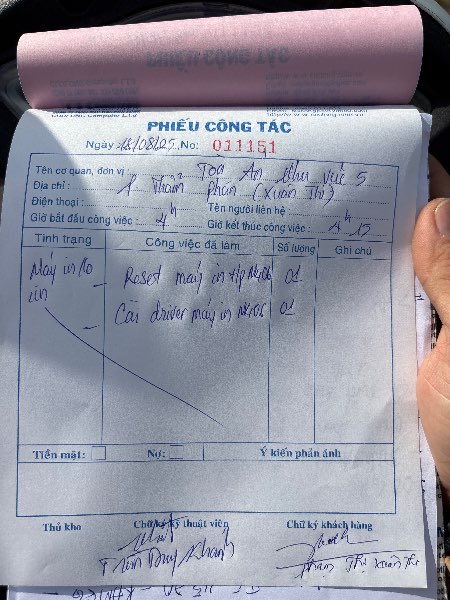 PHIẾU CÔNG TÁC
PHIẾU CÔNG TÁC
Ngày 18/08/25 No: 011151
Tên cơ quan, đơn vị Tòa Án Khu Vực 5
Địa chỉ : P. Thẩm Phán (Xuân Thi)
Điện thoại : Tên người liên hệ
Giờ bắt đầu công việc : 4h Giờ kết thúc công việc : 4h15
Tình trạng Công việc đã làm Số lượng Ghi chú
Máy in lo Reset máy in tại 01
in
- Cài driver máy in 01
Tiền mặt: Nợ: Ý kiến phản ánh
Thủ kho Chữ ký kỹ thuật viên Chữ ký khách hàng
Trần Duy Khánh Phạm Thị Xuân Thi